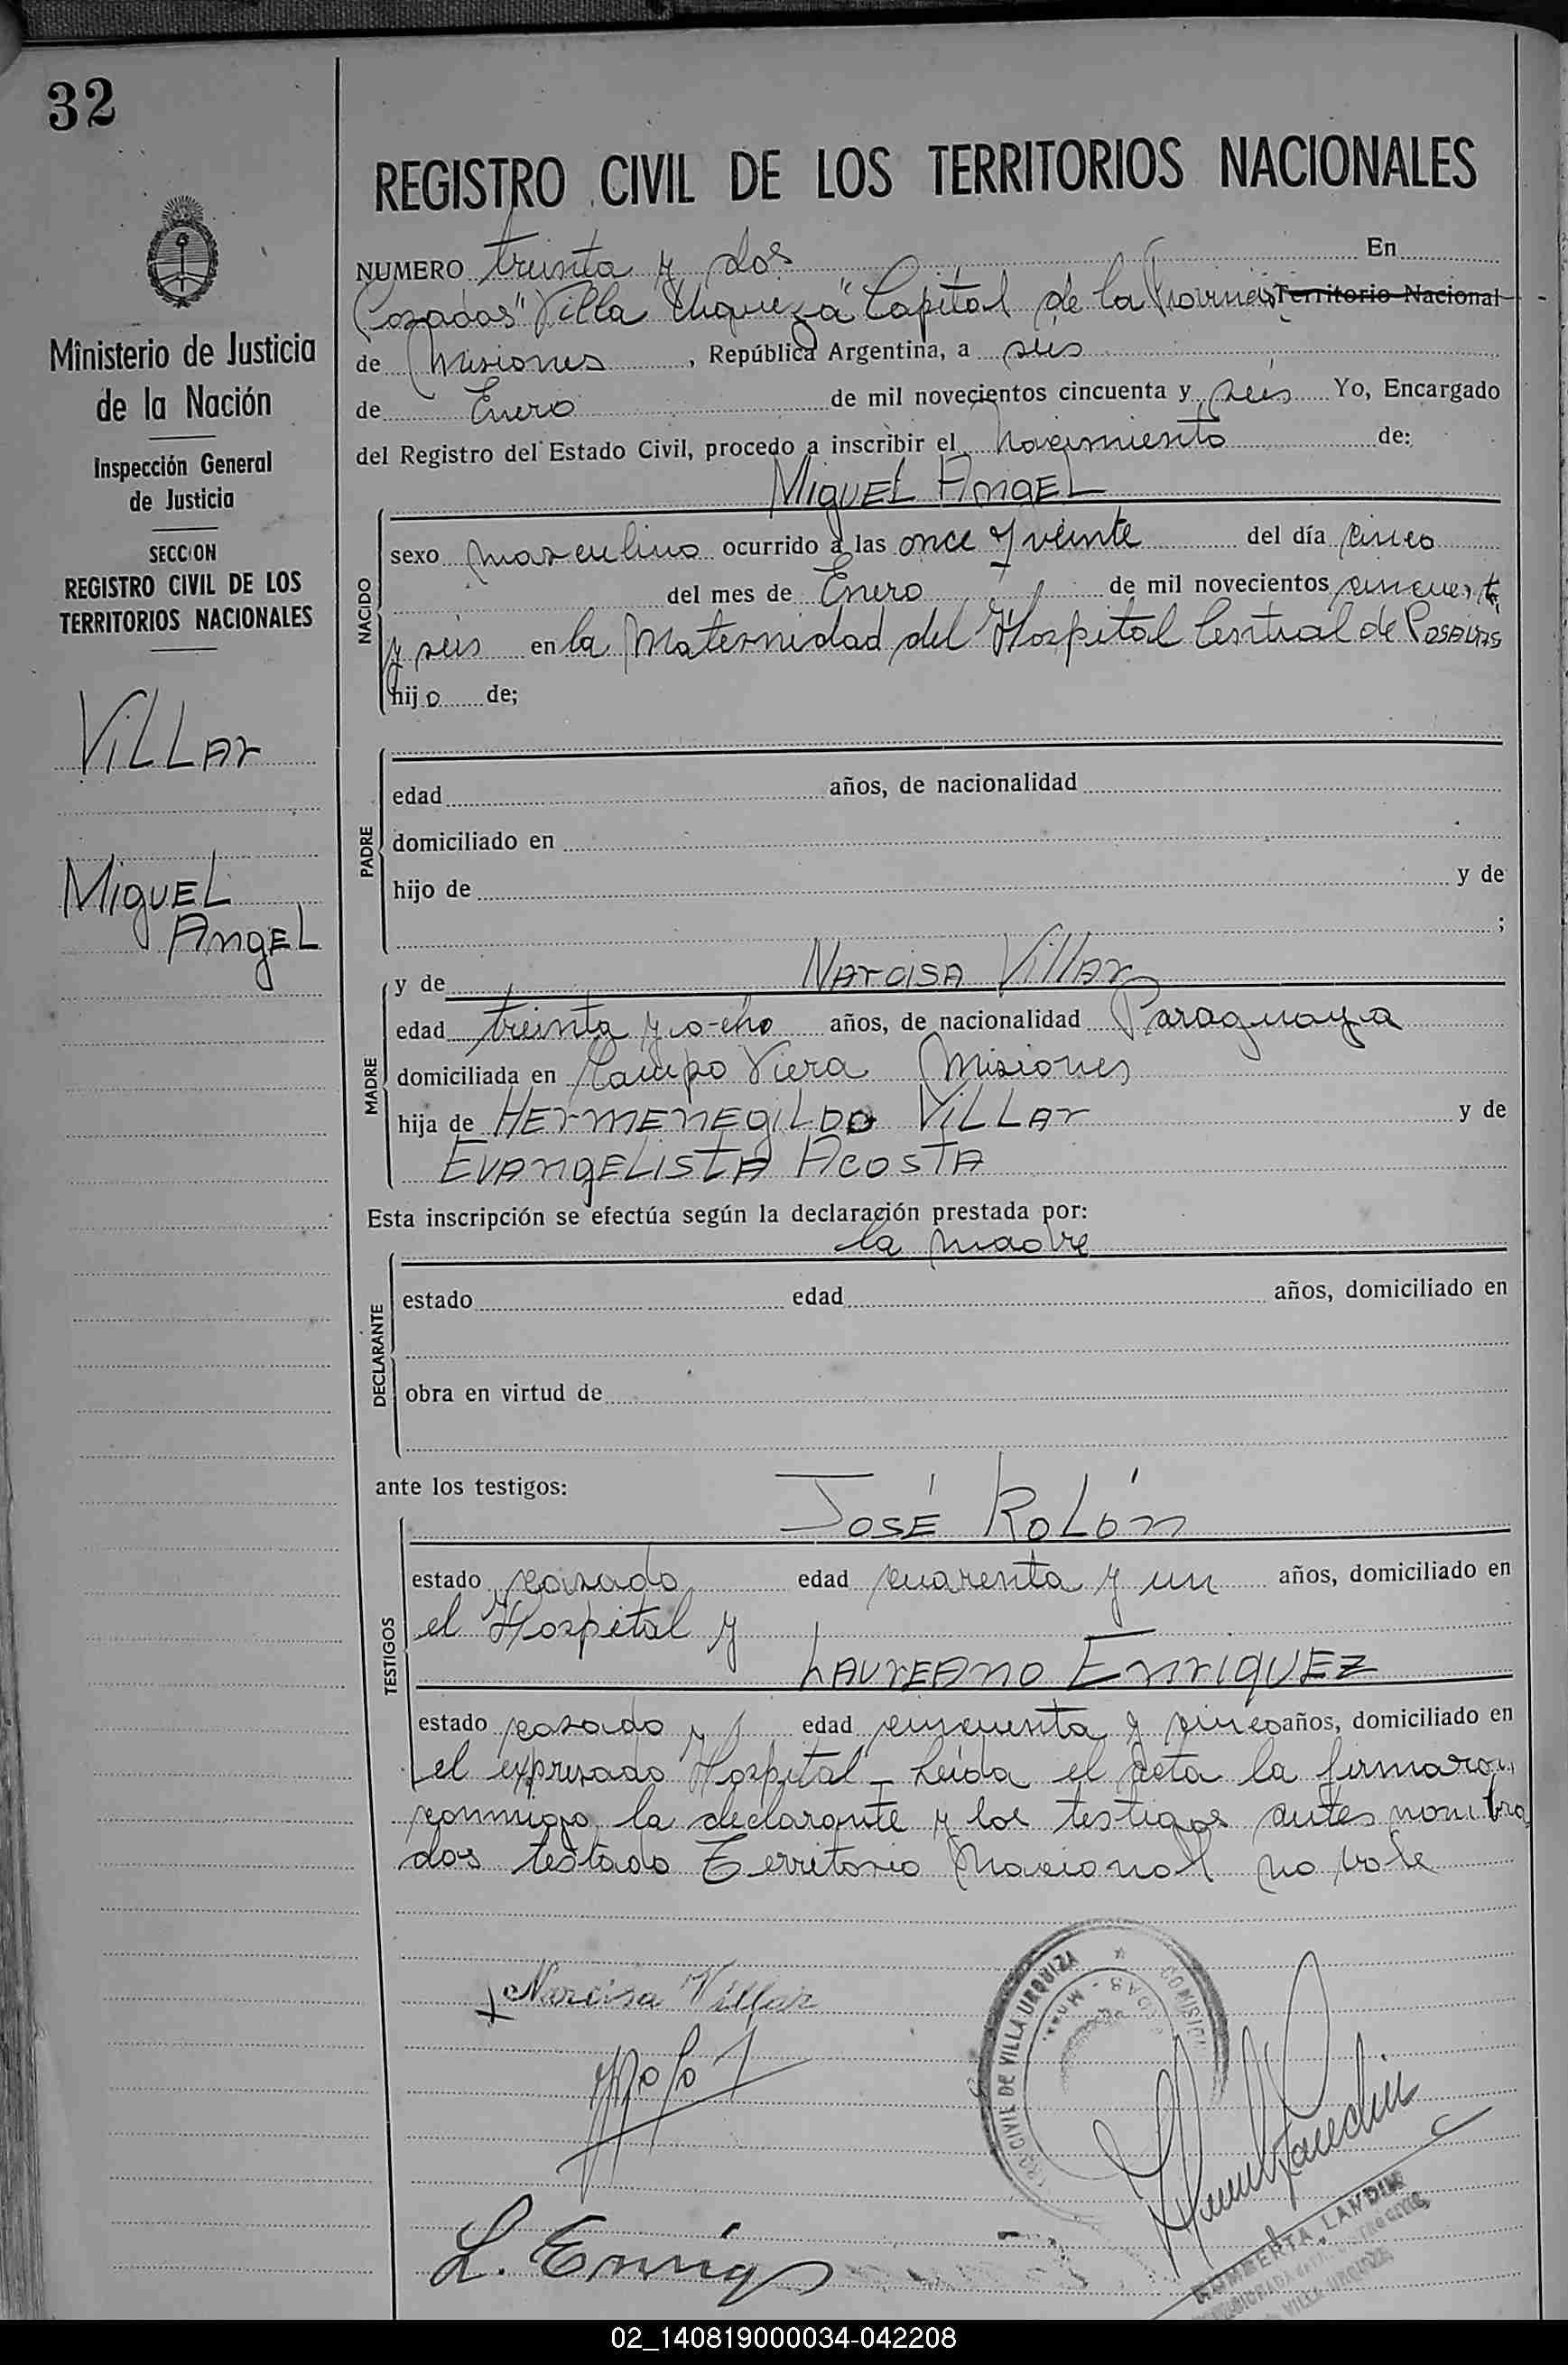 32
Ministerio de Justicia
de la Nación
Inspección General
de Justicia
SECCION
REGISTRO CIVIL DE LOS
TERRITORIOS NACIONALES
VILLAR
MIGUEL
ANGEL
REGISTRO CIVIL DE LOS TERRITORIOS NACIONALES
NUMERO treinta y dos En
Posadas "Villa Urquiza" Capital de la Provincia Territorio Nacional
de Misiones, República Argentina, a seis
de Enero de mil novecientos cincuenta y seis Yo, Encargado
del Registro del Estado Civil, procedo a inscribir el nacimiento de:
MIGUEL ANGEL
NACIDO
sexo masculino ocurrido a las once y veinte del día cinco
del mes de Enero de mil novecientos cincuenta
y seis en la Maternidad del Hospital Central de POSADAS
hijo de;
PADRE
edad años, de nacionalidad
domiciliado en
hijo de y de
;
MADRE
y de NARCISA VILLAR
edad treinta y ocho años, de nacionalidad Paraguaya
domiciliada en Campo Viera Misiones
hija de HERMENEGILDO VILLAR y de
EVANGELISTA ACOSTA
Esta inscripción se efectúa según la declaración prestada por:
la madre
DECLARANTE
estado edad años, domiciliado en
obra en virtud de
ante los testigos:
JOSÉ ROLÓN
TESTIGOS
estado casado edad cuarenta y un años, domiciliado en
el Hospital y
LAUREANO ENRIQUEZ
estado casado y edad cincuenta y cinco años, domiciliado en
el expresado Hospital - Leída el acta la firmaron
conmigo la declarante y los testigos antes nombra
dos testado Territorio Nacional no vale
Narcisa Villar
CIVIL DE VILLA URQUIZA
L. Enriq
LANDI
VILLA URQUIZA
02_140819000034-042208